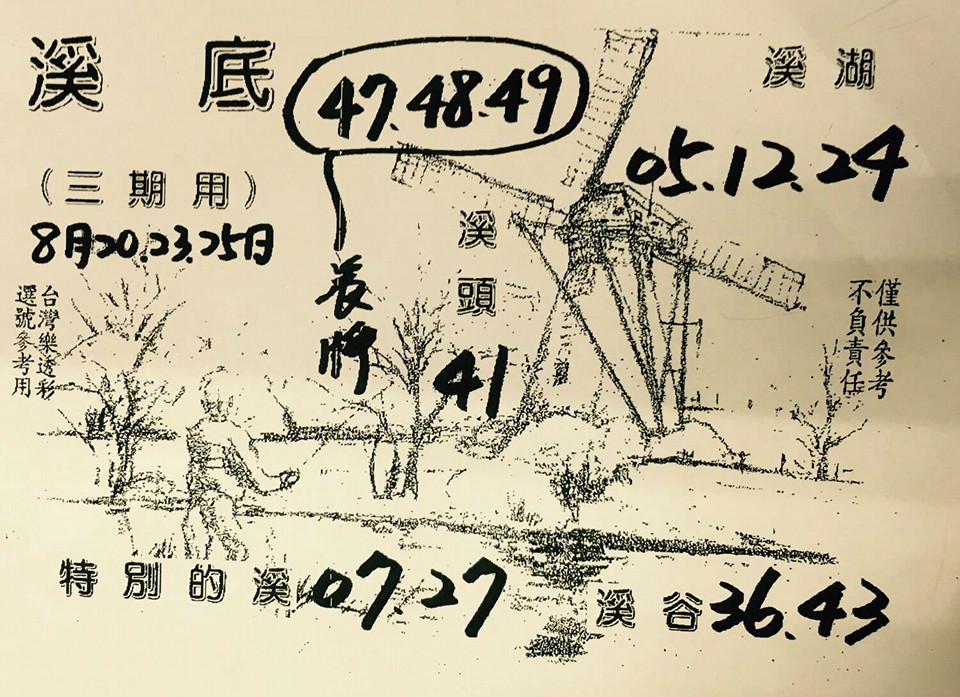 溪底
47.48.49
溪湖
05.12.24
(三期用)
8月20.23.25日
溪頭
41
長牌
台灣樂透彩
選號參考用
僅供參考
不負責任
特別的溪 07.27
溪谷 36.43